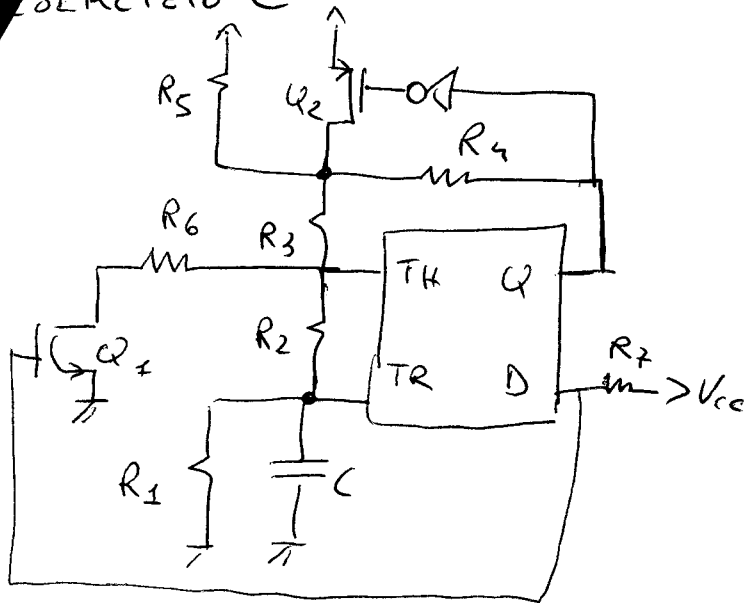 C
R5
Q2
R4
R6
R3
TH
Q
Q1
R2
TR
D
R7
Vcc
R1
C